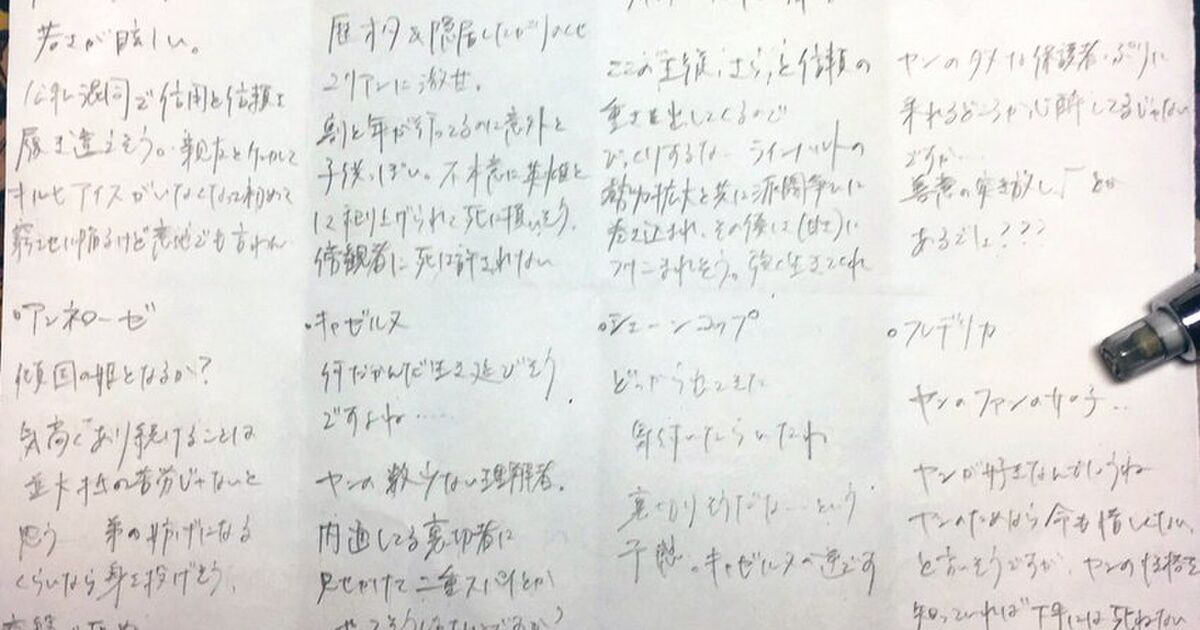 若さが眩しい。
公私混同で信用と信頼を
履き違えそう。親友とケンカして
オルヒアイスがいなくなって初めて
窮地に陥るけど意地でも言わん
歴オタ&隠居したがりのくせ
ユリアンに激甘。
割と年が行ってるのに意外と
子供っぽい。不本意に英雄と
に祀り上げられて死に損いそう。
傍観者に死は許されない
ここの主従、さらっと信頼の
重さを出してくるので
びっくりするな ラインハルトの
勢力拡大と共に派閥争いに
巻き込まれ、その後に(甘さ)に
つけこまれそう。強く生きてくれ
ヤンのダメな保護者っぷりに
呆れるどころか心酔してるじゃない
ですか…
善意の突き放し とか
あるでしょ???
・アンネローゼ
傾国の姫となるか?
気高くあり続けることは
並大抵の苦労じゃないと
思う 弟の妨げになる
くらいなら身を投げそう。
・キャゼルヌ
何だかんだ生き延びそう
ですよね……
ヤンの数少ない理解者。
内通してる裏切者に
見せかけて二重スパイとか
・シェーンコップ
どっから出てきた
気付いたらいたわ
裏切りそうだな…という
予感。キャゼルヌの逆です
・フレデリカ
ヤンのファンの女の子…
ヤンが好きなんでしょうね
ヤンのためなら命も惜しくない
と言いそうですが、ヤンの性格を
知っていれば下手には死ねない